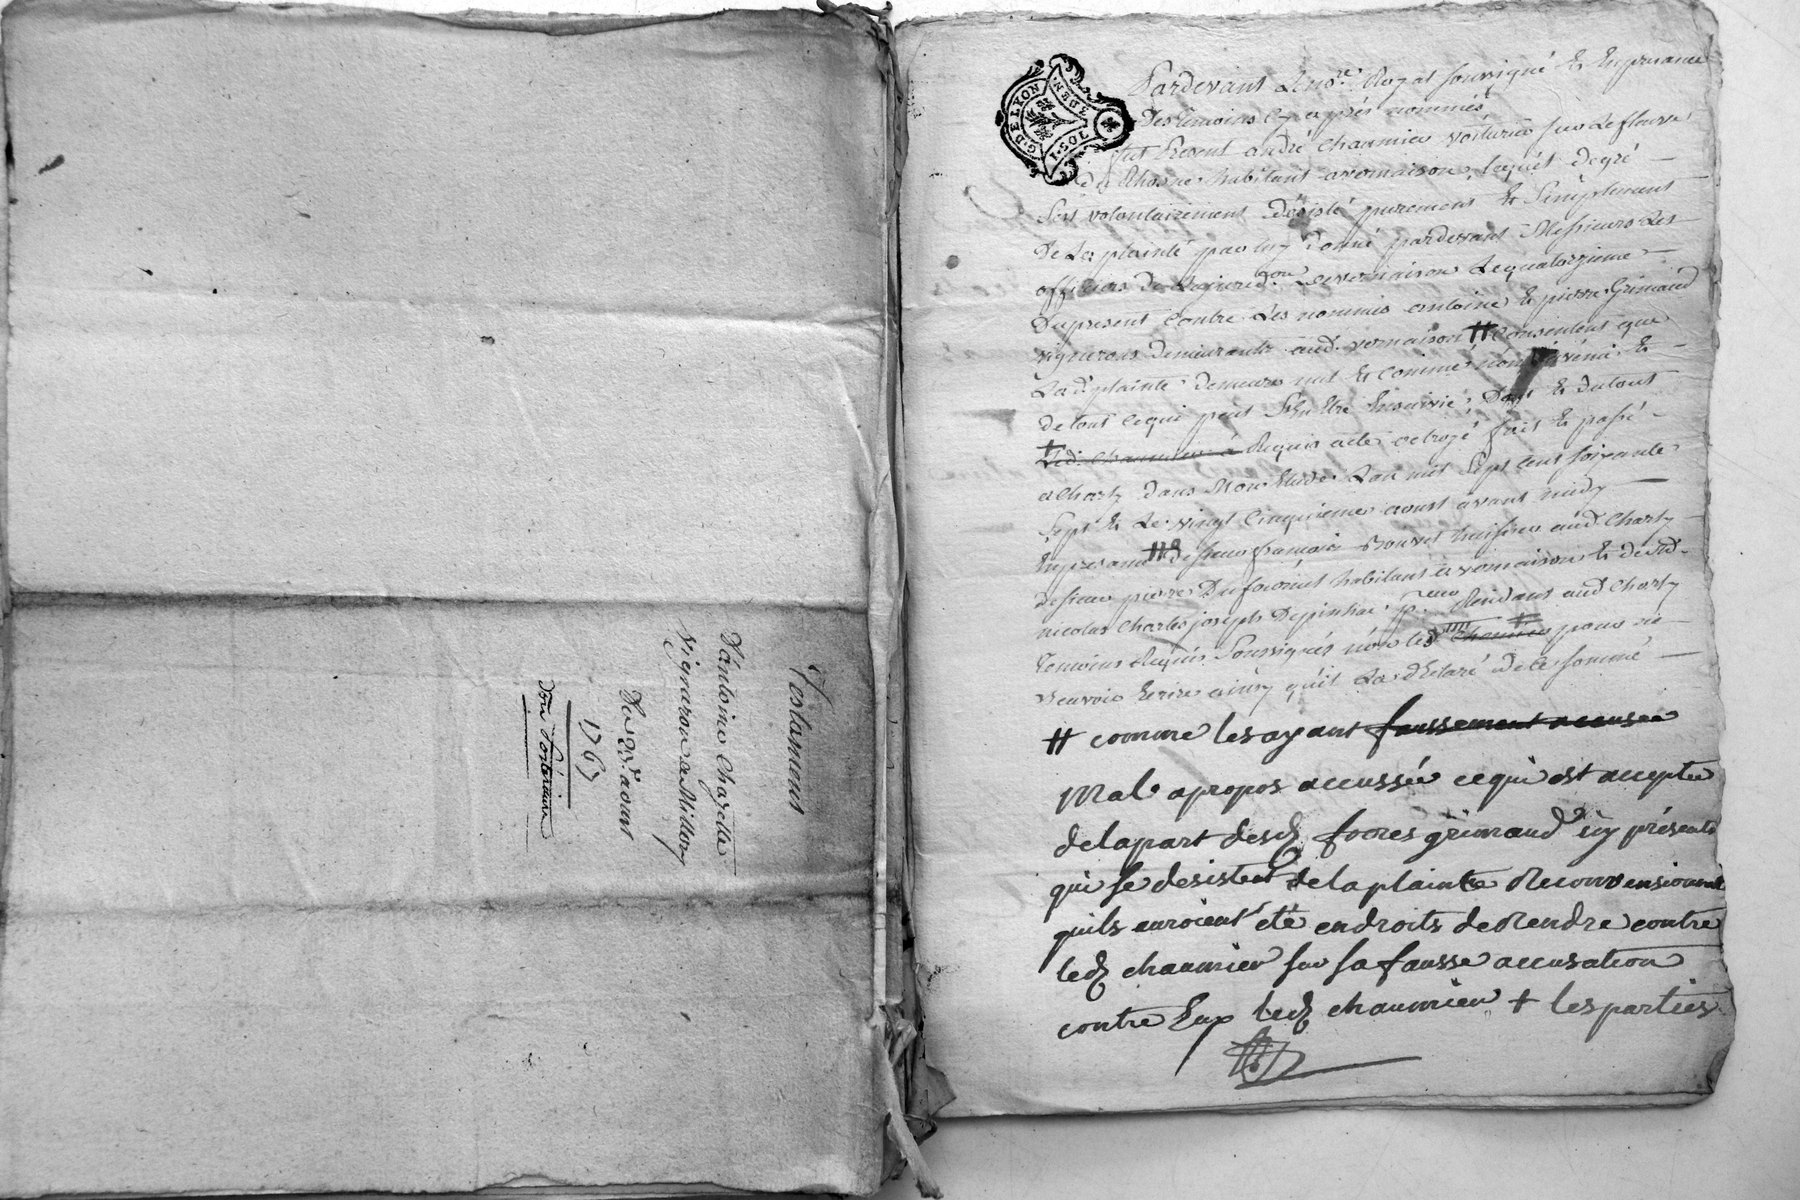 Testament
D'antoine Chazette
vigneron de Millery
Du 23e. aoust
1767
G. DE LYON
1. SOL. 2 DEN.
Pardevant Le no.re Royal soussigné Et En presance
Des temoins Cy apprès nommés
fut Present andré chaumier voiturier sur Le fleuve
du Rhosne habitant a vernaison, Lequel de gré
s'est volontairement Désisté purement Et Simplement
De La plainte par luy Donné pardevant Messieurs Les
officiers De La jurid.on De vernaison Le quatorzieme
Du present Contre Les nommés antoine Et pierre Grimaud
vignerons Demeurants aud. vernaison # Consentent que
La d. plainte Demeure nul Et comme non avenüe Et
de tout Ce qui peut S'En Etre Ensuivie, Dont Et Du tout
Led. Chaumier a Requis acte octroyé fait Et passé
a Charly Dans Mon Etude L'an mil Sept Cent soixante
Sept Et Le vingt Cinquieme aoust avant midy
En presance De sieur françois Bouvet aud. Charly
De sieur pierre Dufournel habitant a vernaison Et de Sr.
nicolas Charles joseph Depinhac Residant aud. Charly
Temoins Requis Soussignés non Led. chaumier pour ne
sçavoir Ecrire ainsy qu'il L'a dEclaré de ce sommé
# comme les ayant faussement accusée
Mal apropos accussée ce qui est accepté
de la part desd. freres grimaud icy présents
qui se desistent de la plainte Reconvensionnel
quils auroient été en droits de Rendre contre
led. chaumier sur sa fausse accusation
contre Eux led. chaumier + les parties